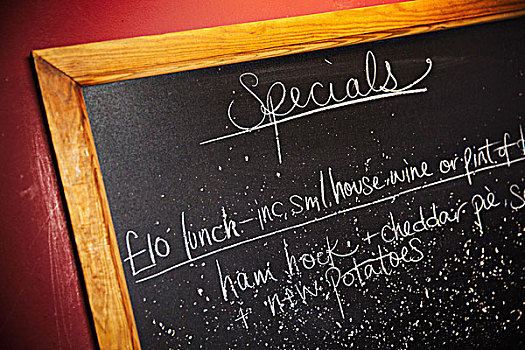 Specials
£10 lunch - inc. sml. house wine or pint of
ham hock + cheddar pie
+ new potatoes